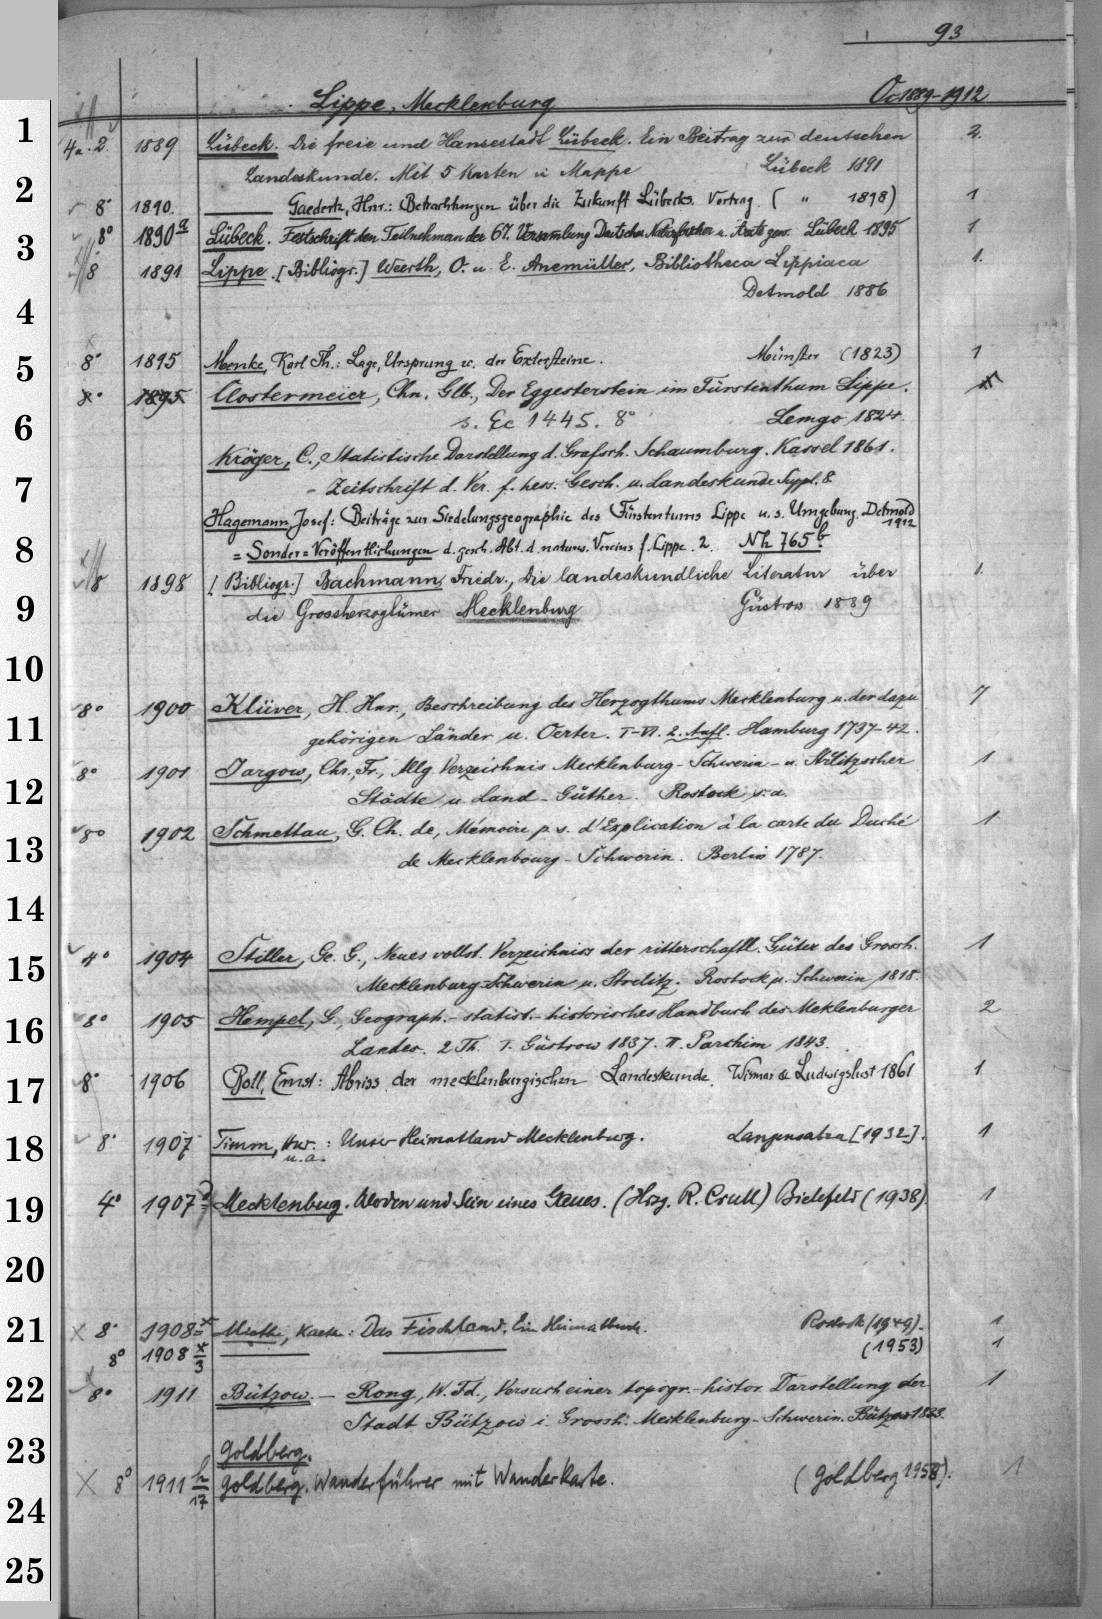 93
Lippe, Mecklenburg Oc 1889-1912
1 4o. 2 1889 Lübeck. Die freie und Hansestadt Lübeck. Ein Beitrag zur deutschen 2.
Landeskunde. Mit 5 Karten u Mappe Lübeck 1891
2 8° 1890. ——— Gaedertz, Hnr.: Betrachtungen über die Zukunft Lübecks. Vortrag. ( " 1898) 1
3 8° 1890 a Lübeck. Festschrift den Teilnehmern der 67. Versamlung Deutscher Naturforscher u. Ärzte gew. Lübeck 1895 1
8 1891 Lippe. [Bibliogr.] Weerth, O. u. E. Anemüller, Bibliotheca Lippiaca 1.
4 Detmold 1886
5 8° 1895 Menke, Karl Th.: Lage, Ursprung ec. der Extersteine. Münster (1823) 1
8° 1895 Clostermeier, Chn. Glb., Der Eggesterstein im Fürstenthum Lippe.
6 s. Ec 1445. 8° Lemgo 1824.
Kröger, C., Statistische Darstellung d. Grafsch. Schaumburg. Kassel 1861.
7 = Zeitschrift d. Ver. f. hess. Gesch. u. Landeskunde Suppl. 8.
Hagemann, Josef: Beiträge zur Siedelungsgeographie des Fürstentums Lippe u. s. Umgebung. Detmold 1912
8 = Sonder=Veröffentlichungen d. gesch. Abt. d. naturw. Vereins f. Lippe. 2. Nh 765 b
8 1898 [Bibliogr.] Bachmann, Friedr., Die landeskundliche Literatur über 1.
9 die Grossherzogtümer Mecklenburg Güstrow 1889
10
8° 1900 Klüver, H. Hnr., Beschreibung des Herzogthums Mecklenburg u. der dazu 7
11 gehörigen Länder u. Oerter. I-VI. 2. Aufl. Hamburg 1737-42.
8° 1901 Jargow, Chr. Fr., Allg Verzeichnis Mecklenburg-Schwerin- u. Strlitzscher 1
12 Städte u. Land-Güther. Rostock s. a.
8° 1902 Schmettau, G. Ch. de, Mémoire p. s. d'Explication à la carte du Duché 1
13 de Mecklenbourg-Schwerin. Berlin 1787.
14
4° 1904 Stiller, Ge. G., Neues vollst. Verzeichniss der ritterschaftl. Güter des Grossh. 1
15 Mecklenburg-Schwerin u. Strelitz. Rostock u. Schwerin 1818.
16 8° 1905 Hempel, G., Geograph.-statist.-historisches Handbuch des Meklenburger 2
Landes. 2 Th. I. Güstrow 1837. II. Parchim 1843.
17 8° 1906 Boll, Ernst: Abriss der mecklenburgischen Landeskunde. Wismar & Ludwigslust 1861 1
18 8° 1907 Timm, Hw. u.a.: Unser Heimatland Mecklenburg. Langensalza [1932]. 1
19 4° 1907 a Mecklenburg. Werden und Sein eines Gaues. (Hrsg. R. Crull) Bielefeld (1938). 1
20
21 8° 1908 x Miethe, Kaethe: Das Fischland. Ein Heimatbuch. Rostock (1949). 1
8° 1908 x/3 ——— ——— (1953) 1
22 8° 1911 Bützow. — Rong, W. Fd., Versuch einer topogr.-histor. Darstellung der 1
Stadt Bützow i. Grossh. Mecklenburg-Schwerin. Bützow 1823.
23 Goldberg.
8° 1911 h/17 Goldberg. Wanderführer mit Wanderkarte. (Goldberg 1958). 1
24
25